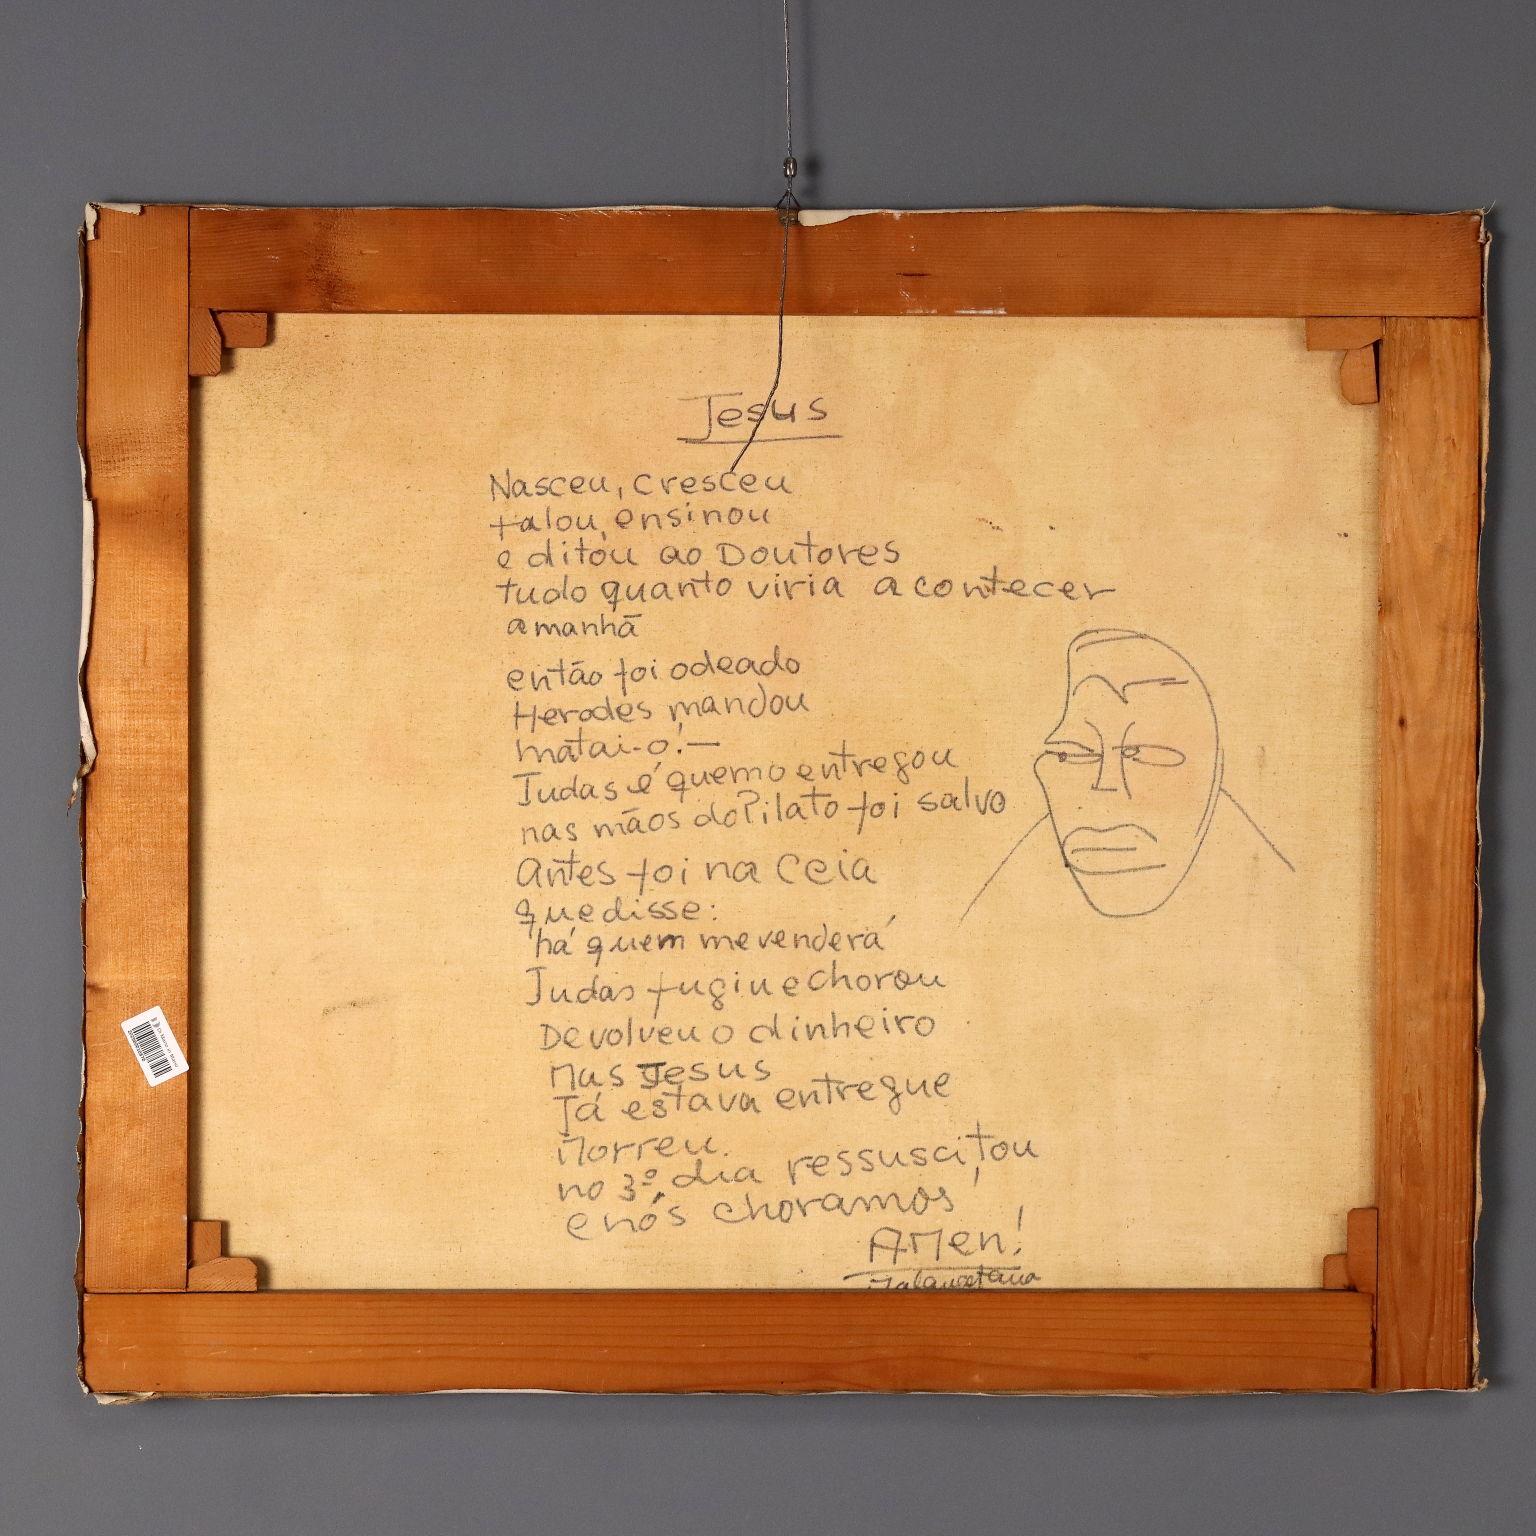 Jesus
Nasceu, cresceu
falou, ensinou
e ditou ao Doutores
tudo quanto viria acontecer
amanhã
então foi odeado
Herodes mandou
matai-o! —
Judas é quem o entregou
nas mãos do Pilato foi salvo
Antes foi na Ceia
que disse:
há quem me venderá
Judas fugiu e chorou
Devolveu o dinheiro
Mas Jesus
Já estava entregue
Morreu.
no 3º dia ressuscitou
e nós choramos
AMen!